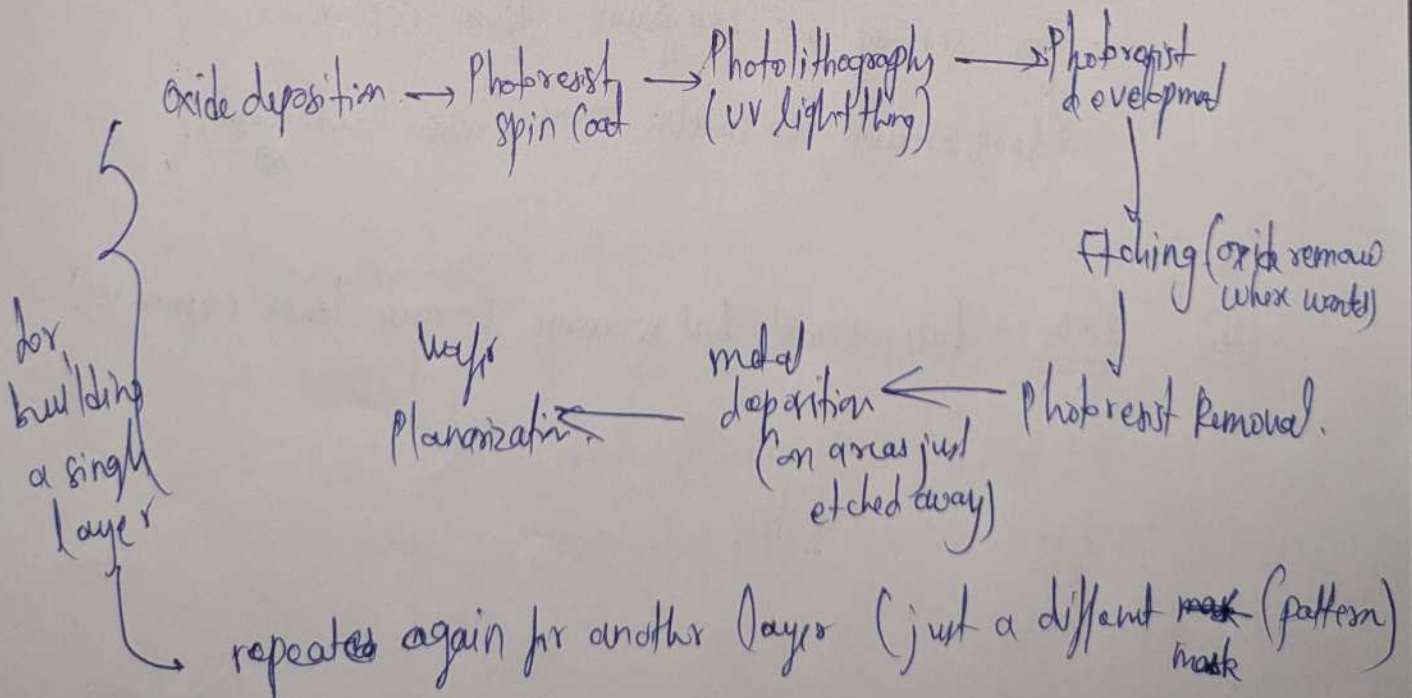 oxide deposition → Photoresist spin Coat → Photolithography (UV light thing) → Photoresist development
Etching (oxide removed where wanted)
Photoresist Removal.
metal deposition (on areas just etched away)
Wafer Planarization.
for building a single layer
repeated again for another layer (just a different mask (pattern)